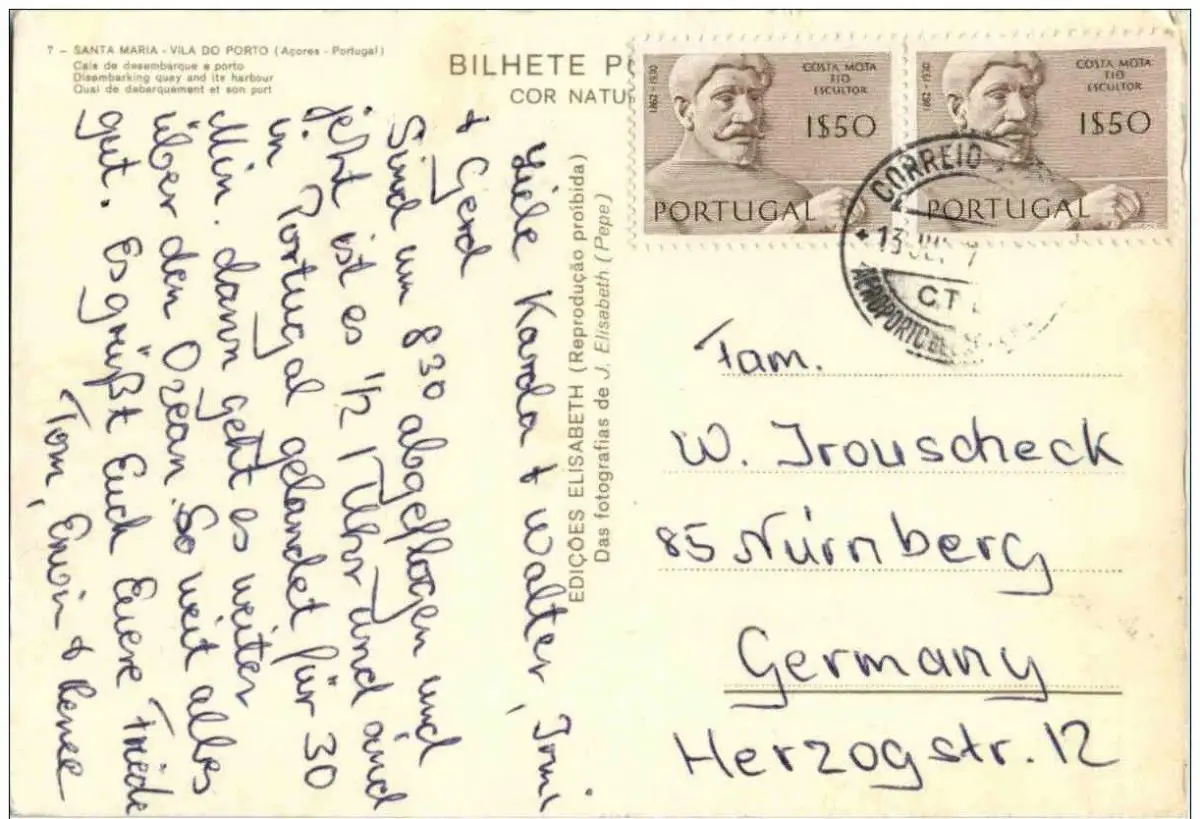 7 – SANTA MARIA - VILA DO PORTO (Açores - Portugal)
Cais de desembarque e porto
Disembarking quay and its harbour
Quai de debarquement et son port
BILHETE P
COR NATU
EDIÇÕES ELISABETH (Reprodução proibida)
Das fotografias de J. Elisabeth (Pepe)
1862 - 1930
COSTA MOTA
TIO
ESCULTOR
1$50
PORTUGAL
1862 - 1930
COSTA MOTA
TIO
ESCULTOR
1$50
PORTUGAL
CORREIO
13
C.T
AEROPORTO DE
Karola + Walter, Irmi
+ Gerd
Sind um 830 abgeflogen und
jetzt ist es 1/2 1 Uhr und sind
in Portugal gelandet für 30
Min. dann geht es weiter
über den Ozean. So weit alles
gut. Es grüßt Euch Euere Friede
Tom, Erwin + Renee
Fam.
W. Trouscheck
85 Nürnberg
Germany
Herzogstr. 12